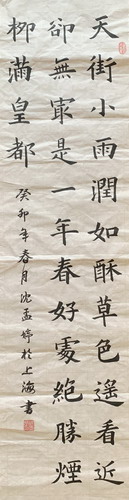 天街小雨潤如酥草色遙看近
卻無冣是一年春好處絕勝煙
柳滿皇都
癸卯年春月沈孟婷於上海書